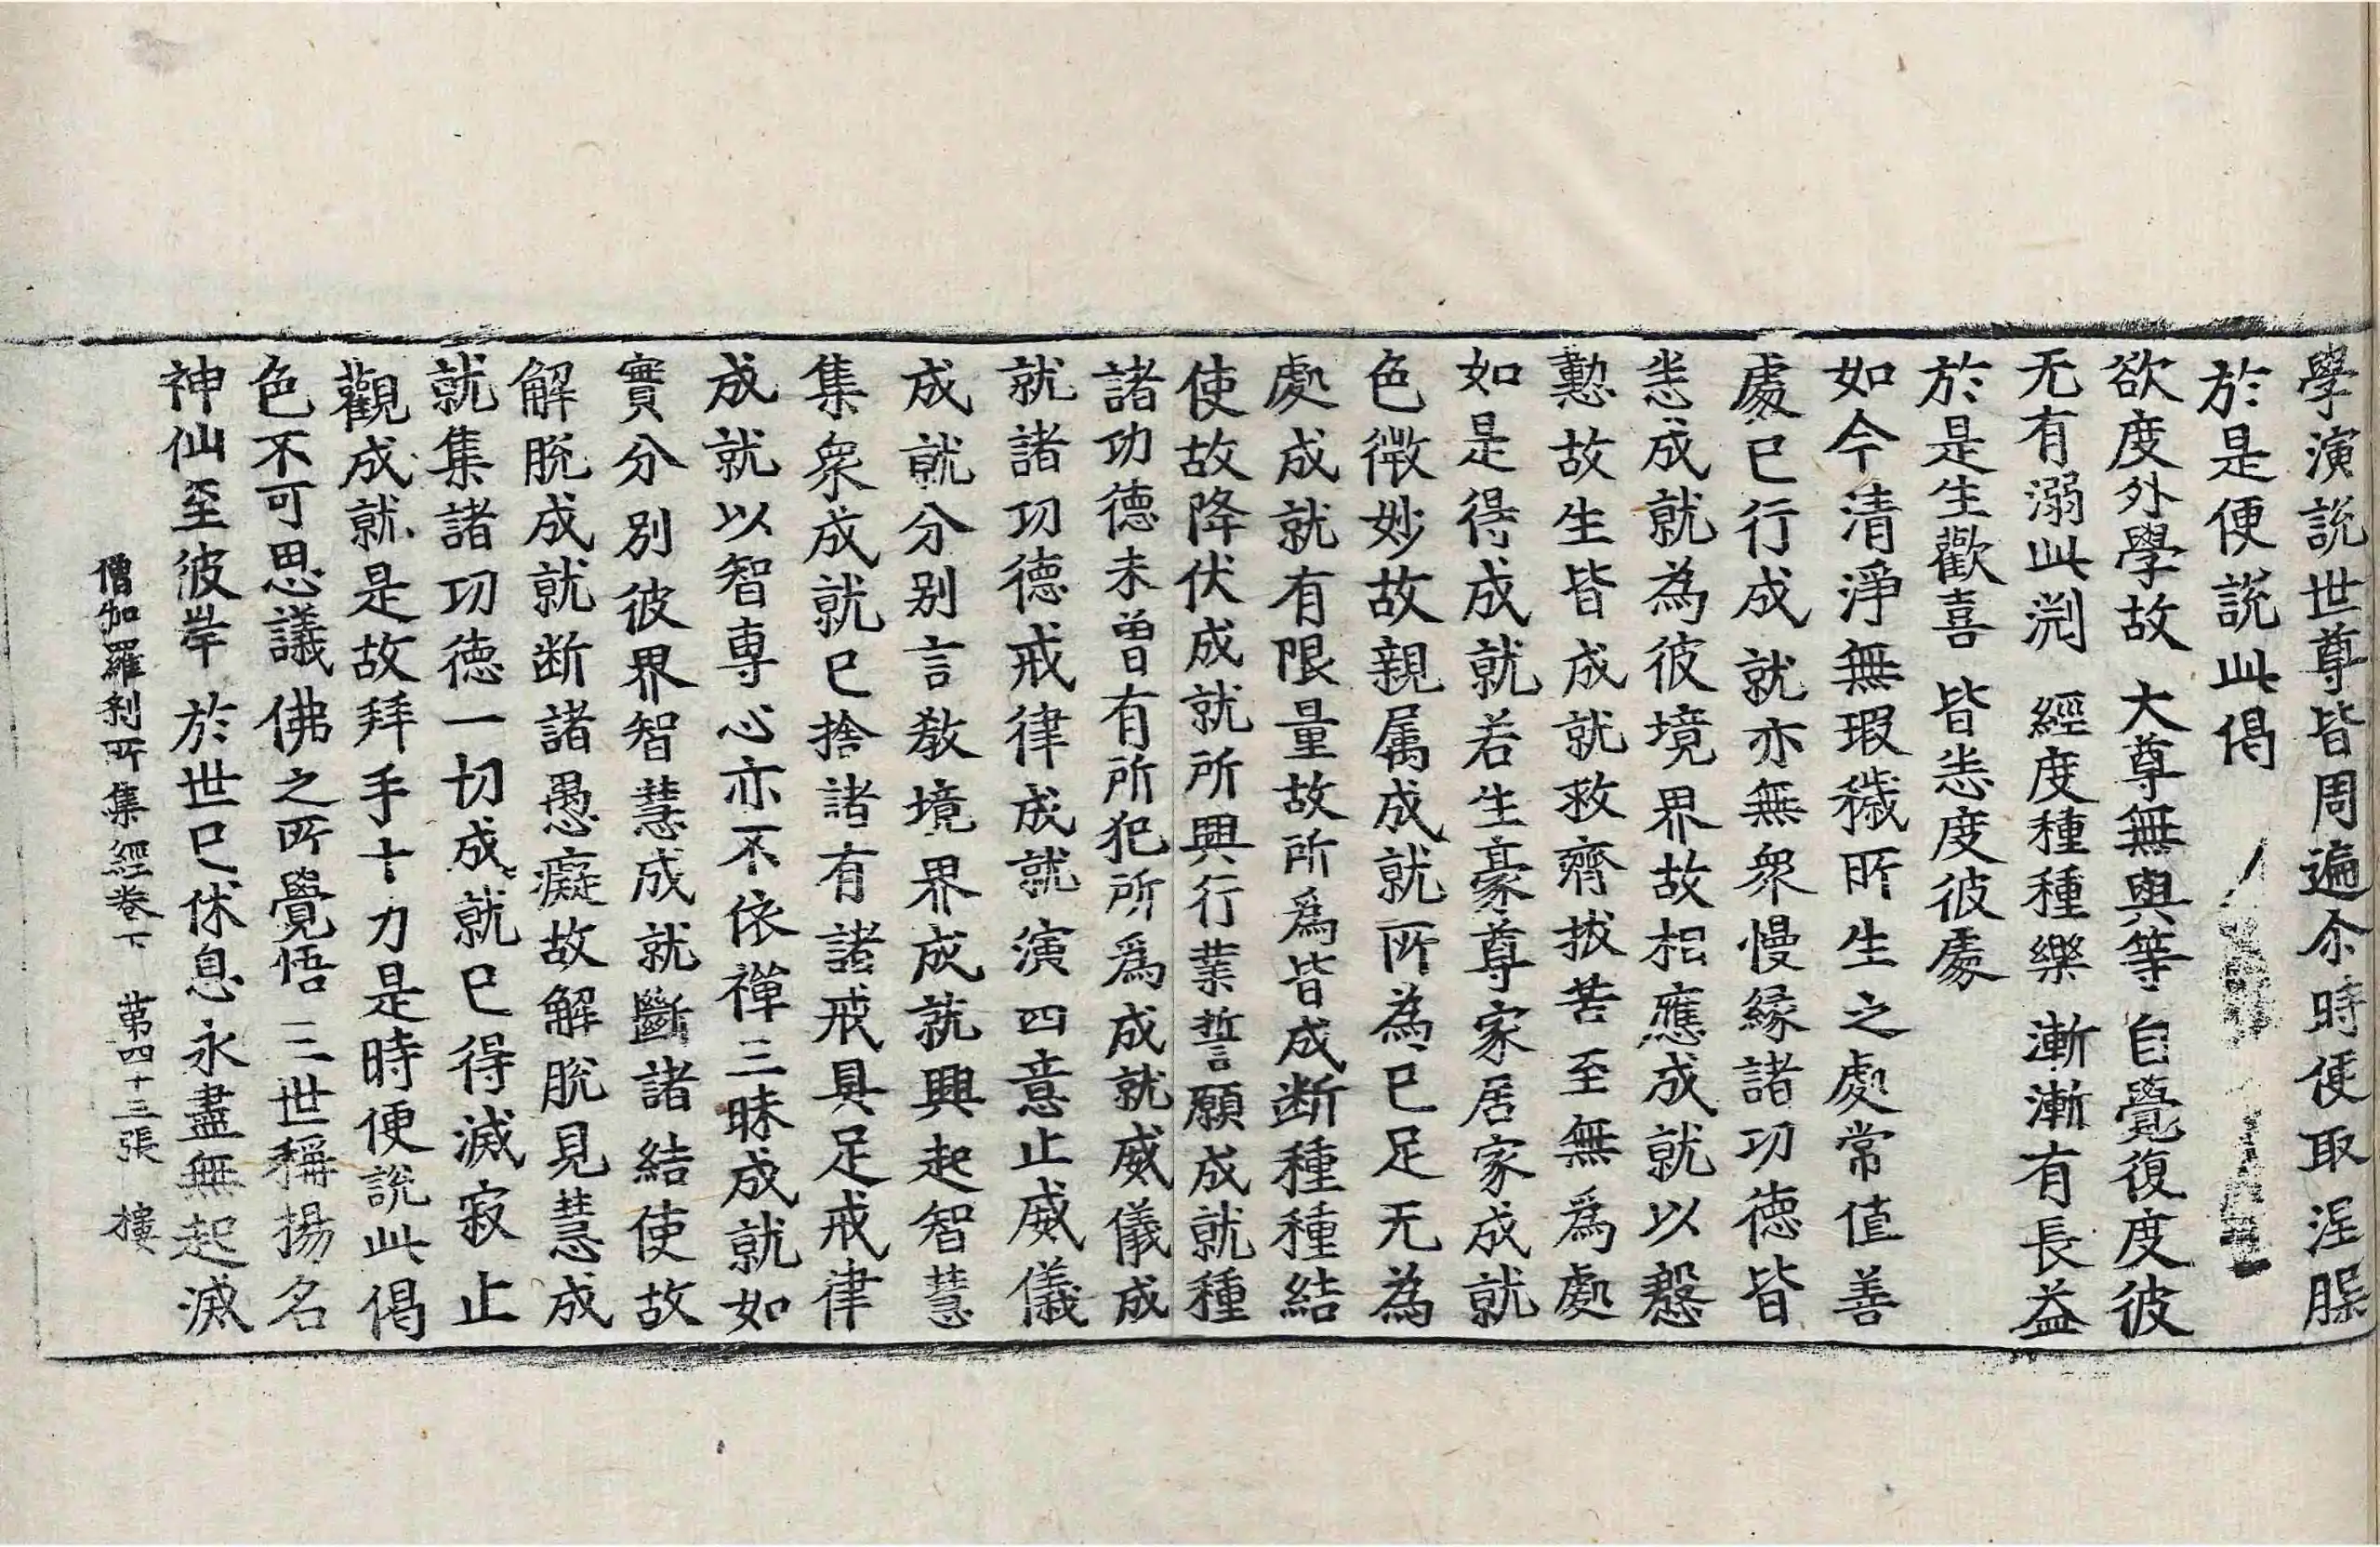 學演說世尊皆周遍尒時便取涅腂
於是便說此偈
欲度外學故　大尊無與等　自覺復度彼
无有溺此渕　經度種種樂　漸漸有長益
於是生歡喜　皆悉度彼處
如今清淨無瑕穢所生之處常值善
處已行成就亦無衆慢緣諸功德皆
悉成就為彼境界故相應成就以慇
懃故生皆成就救齊拔苦至無爲處
如是得成就若生豪尊家居家成就
色微妙故親属成就所為已足无為
處成就有限量故所爲皆成断種種結
使故降伏成就所興行業誓願成就種
諸功德未曾有所犯所爲成就威儀成
就諸功德戒律成就演四意止威儀
成就分别言教境界成就興起智慧
集衆成就已捨諸有諸戒具足戒律
成就以智専心亦不依禪三昧成就如
實分别彼界智慧成就斷諸結使故
解脫成就断諸愚癡故解脫見慧成
就集諸功德一切成就已得滅寂止
觀成就是故拜手十力是時便說此偈
色不可思議　佛之所覺悟　三世稱揚名
神仙至彼岸　於世已休息　永盡無起滅
僧伽羅刹所集經卷下　第四十三張　樓